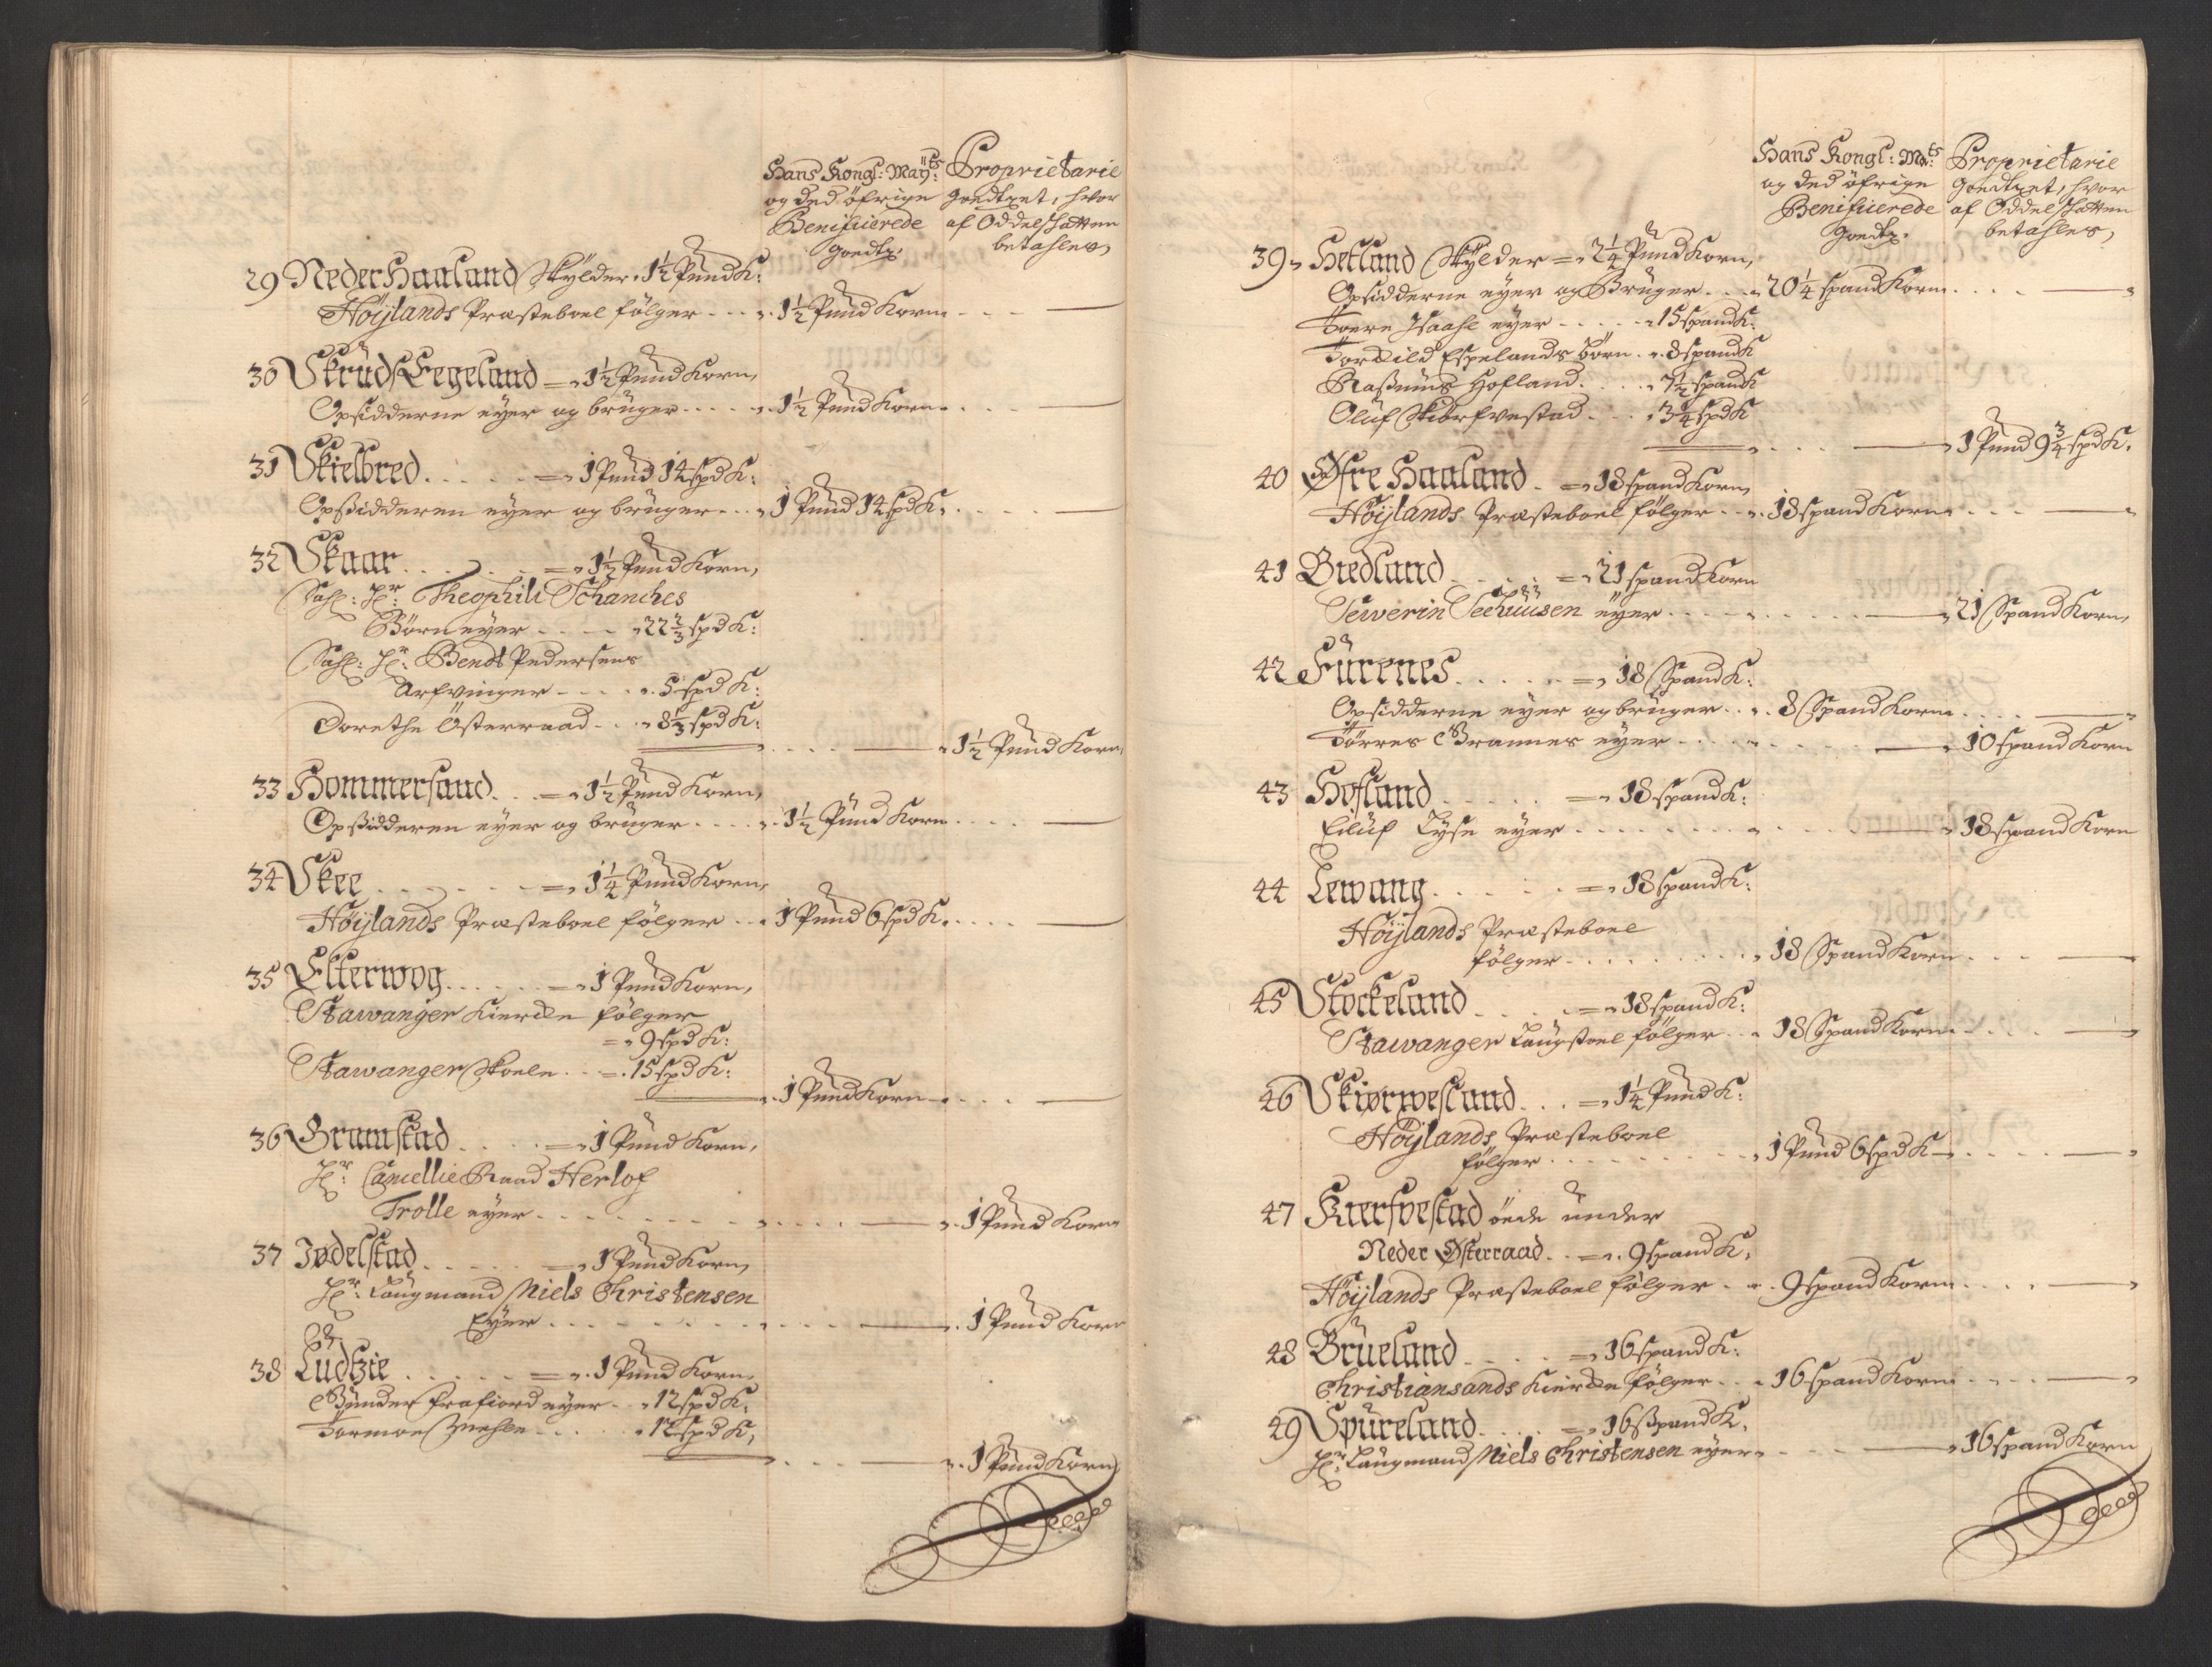 Hans Kongl: Mayts: og ded öfrige Benificerede goedtz.
Proprietarie goedtzet, hvor af Oddelskatten betahles,
29 Neder Haaland Skÿlder. 1½ Pund K:
Höÿlands Præsteboel fölger - - - 1½ Pund Korn - - -
30 Skruds Eegeland = 1½ Pund Korn,
Opsidderne eÿer og brüger - - - 1½ Pund Korn. - - -
31 Skielbred. . . . = 1 Pund 14 spd K:
Opsidderen eÿer og brüger - - - 1 Pund 14 spd K. - - -
32 Skaar . . . . = 1½ Pund Korn,
Sahl: Hr: Theophili Schanches
Börn eÿer - - - 22⅔ spd K:
Sahl: Hr: Bendt Pedersens
Arfvinger - - - 5 spd K:
Dorethe Österraad - - 8⅓ spd K:
1½ Pund Korn,
33 Hommersand. . . = 1½ Pund Korn,
Opsidderen eÿer og brüger - - - 1½ Pund Korn - - -
34 Skee . . . . = 1¼ Pund Korn,
Höÿlands Præsteboel fölger - - 1 Pund 6 spd K. - - -
35 Elterwog . . . . = 1 Pund Korn,
Stawanger Kiercke fölger
= 9 spd K:
Stawanger Skoele - - = 15 spd K:
1 Pund Korn - - -
36 Gramstad . . . . = 1 Pund Korn,
Hr: Cancellie Raad Herlof
Trolle eÿer - - - 1 Pund Korn
37 Jødelstad . . . . = 1 Pund Korn,
Hr: Laugmand Niels Christensen
Eÿer - - - 1 Pund Korn
38 Ludtzie . . . . = 1 Pund Korn,
Gunder Frafiord eÿer - - 12 spd K,
Tormoe - - - 12 spd K,
1 Pund Korn,
Hans Kongl: Mts: og ded öfrige Benificerede goedtz.
Proprietarie goedtzet, hvor af Oddelskatten betahles,
39 Hetland Skÿlder = 2¼ Pund Korn,
Opsidderne eÿer og Brüger - - - 20¼ spand Korn - - -
Toere Isaahl eÿer - - - 15 spand K:
Torkild Espelands Börn - 8 spand K
Rasmus Hofland - - - 7½ spand K
Oluf Skiorfvestad - - - 3¾ spd K
1 Pund 9¾ spd K.
40 Øfre Haaland - = 18 spand Korn,
Höÿlands Præsteboel fölger - - 18 spand Korn - - -
41 Bredland . . . = 21 spand Korn
Sewerin Seehuusen eÿer - - - 21 Spand Korn,
42 Furenes . . . . = 18 Spand K:
Opsidderne eÿer og brüger - - 8 Spand Korn - - -
Törres Brannes eÿer - - - 10 spand Korn
43 Hofland . . . . = 18 spand K:
Eiluf Lÿse eÿer - - - 18 spand Korn
44 Lewang . . . . = 18 spand K:
Höÿlands Præsteboel
fölger - - - 18 Spand Korn - - -
45 Stockeland . . . = 18 spand K:
Stawanger Laugstoel fölger - - 18 Spand Korn - - -
46 Skiørwesland . . . = 1¼ Pund K:
Höÿlands Præsteboel
fölger - - - 1 Pund 6 spd K - - -
47 Kierfvestad öede under
Neder Østerraad . . = 9 spand K,
Höÿlands Præsteboel fölger - - 9 spand Korn - - -
48 Brueland . . . = 16 spand K:
Christiansands Kiercke fölger - - 16 spand Korn - - -
49 Spureland . . . = 16 Spand K,
Hr: Laugmand Niels Christensen eÿer - - - 16 spand Korn